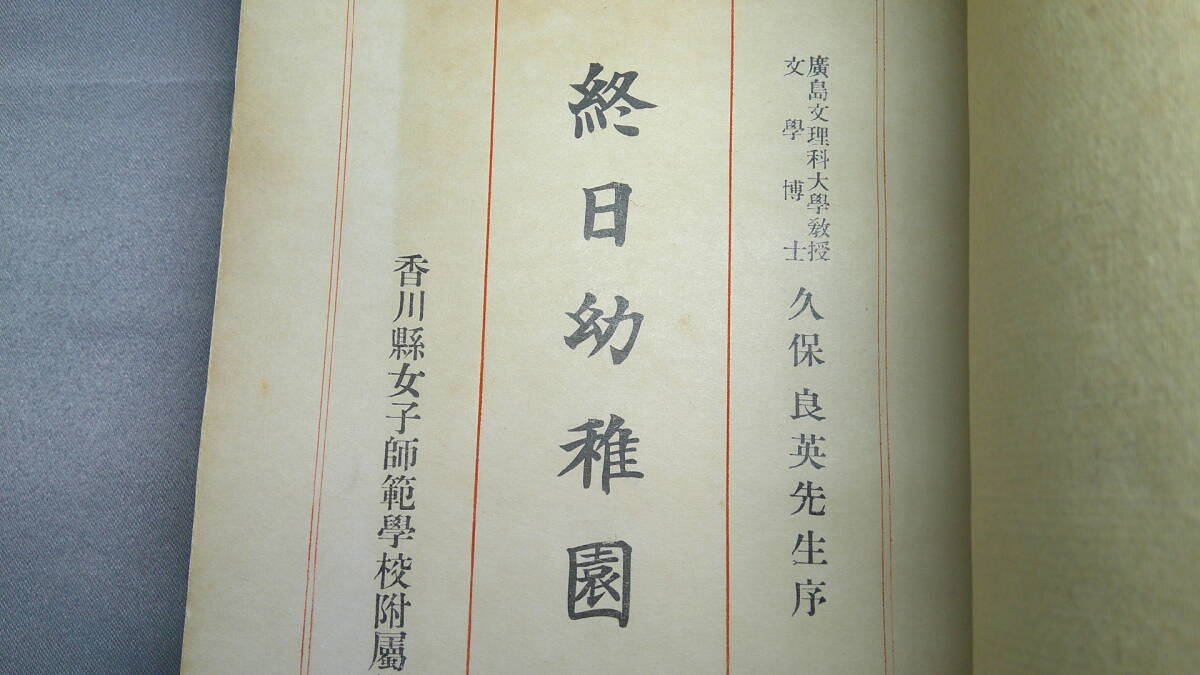 廣島文理科大學敎授
文學博士
久保良英先生序
終日幼稚園
香川縣女子師範學校附屬